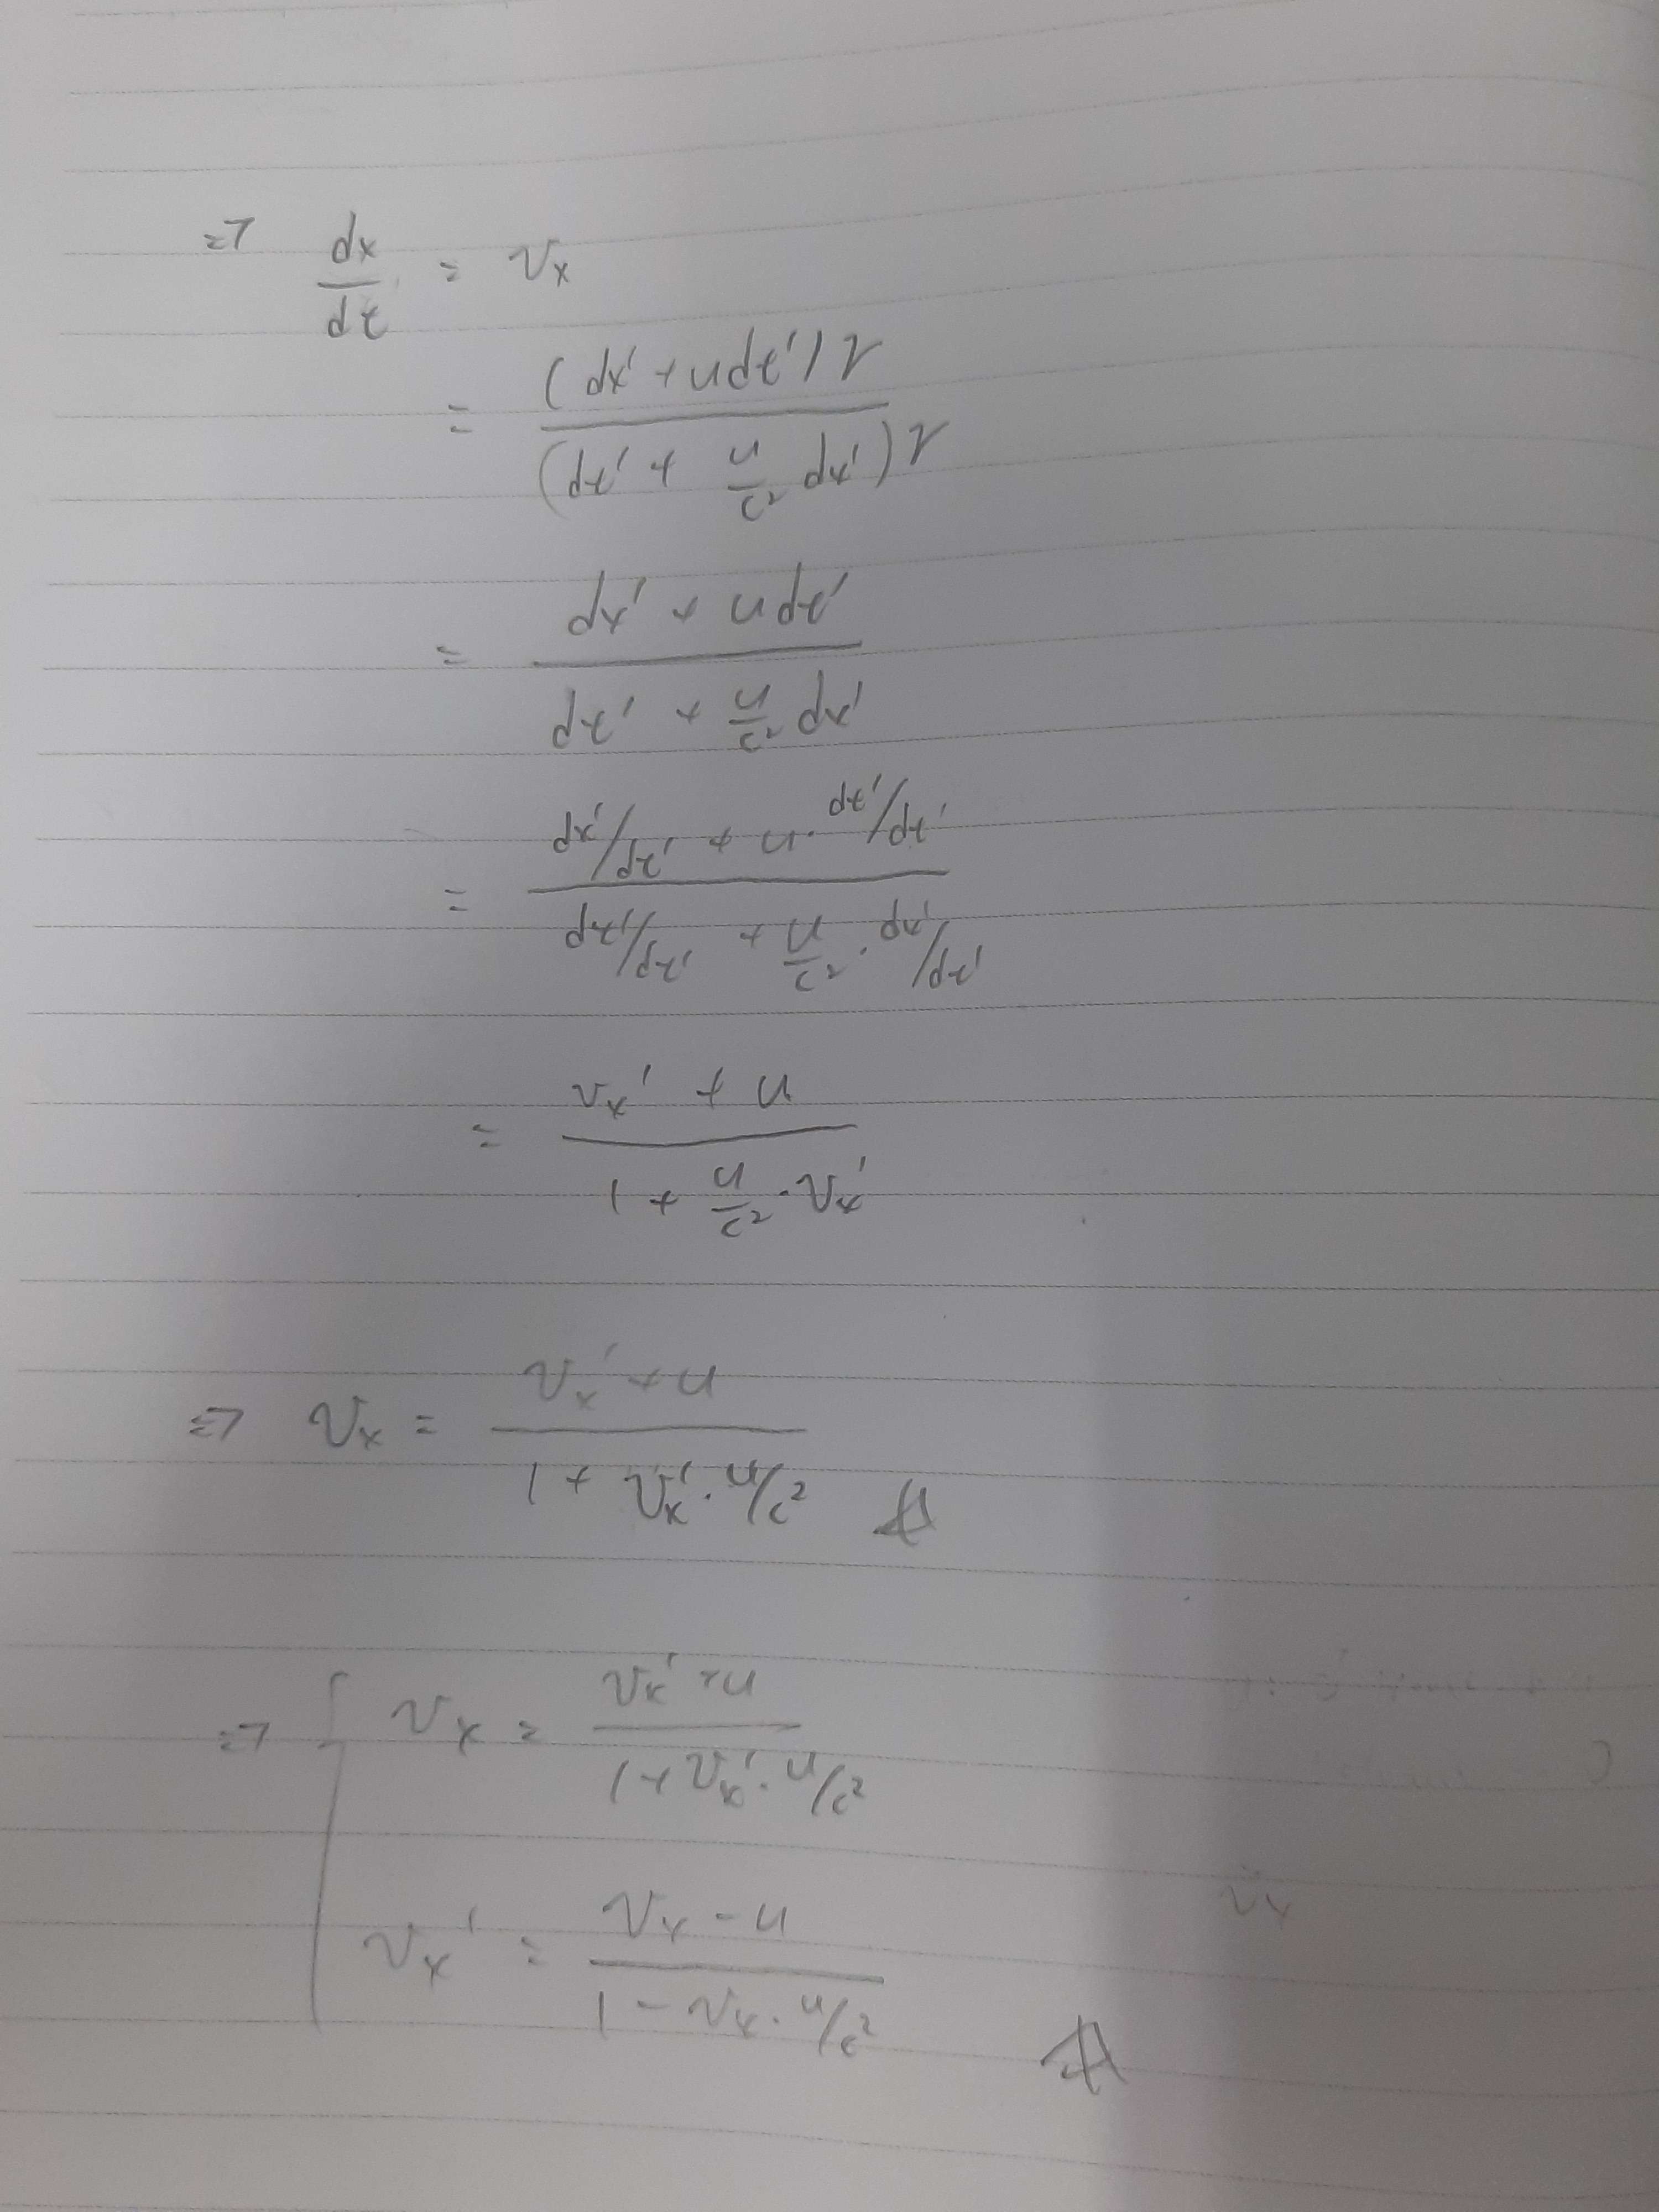 ⇒ dx/dt = Vx
= (dx' + udt')γ / (dt' + u/c² dx')γ
= dx' + udt' / dt' + u/c² dx'
= dx'/dt' + u · dt'/dt' / dt'/dt' + u/c² · dx'/dt'
= Vx' + u / 1 + u/c² · Vx'
⇒ Vx = Vx' + u / 1 + Vx' · u/c² #
⇒ { Vx = Vx' + u / 1 + Vx' · u/c²
Vx' = Vx - u / 1 - Vx · u/c² #